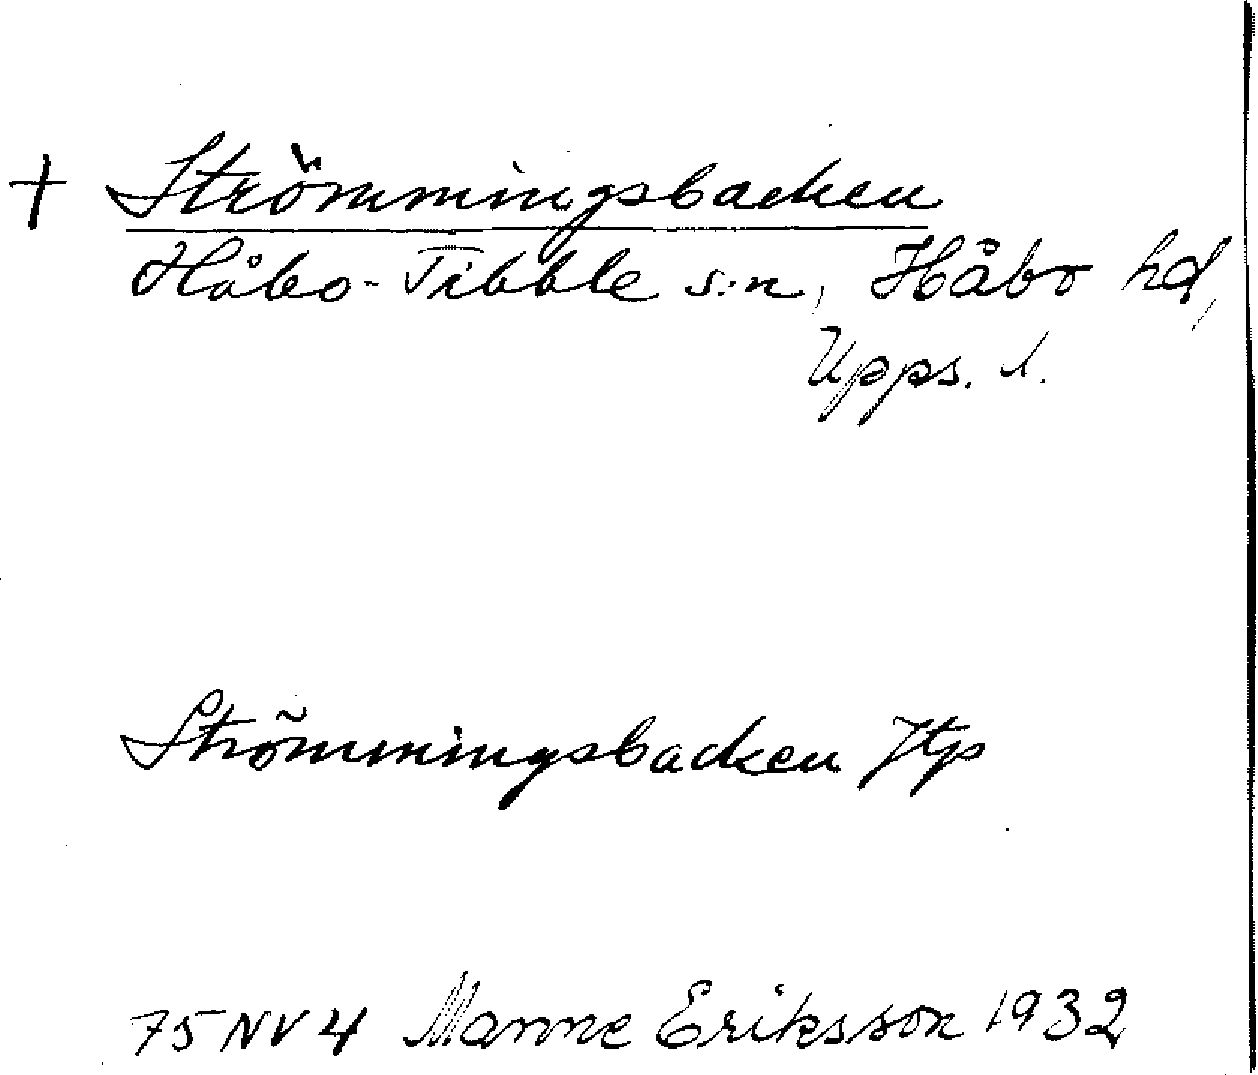 + Strömmingsbacken
Håbo-Tibble s:n, Håbo hd,
Upps. l.
Strömmingsbacken Jtp
75 NV 4 Manne Eriksson 1932